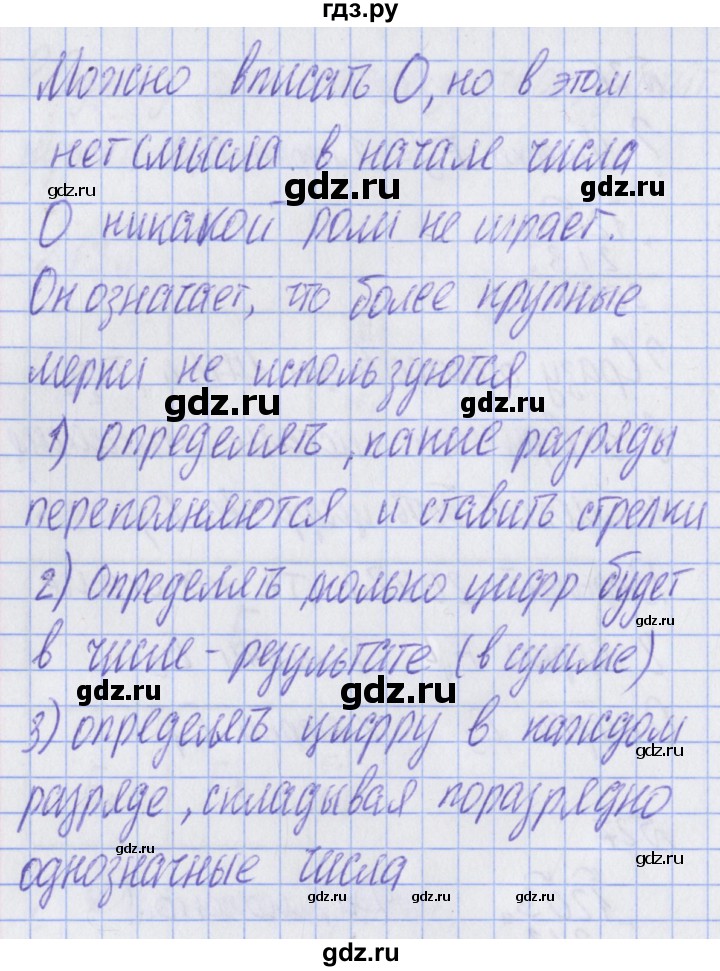 гдз.ру
Можно вписать 0, но в этом
нет смысла в начале числа
gdz.ru
gdz.ru
gdz.ru
0 никакой роли не играет.
Он означает, что более крупные
мерки не используются
gdz.ru
gdz.ru
1) определять, какие разряды
переполняются и ставить стрелки
2) определять сколько цифр будет
gdz.ru
в числе-результате (в сумме)
gdz.ru
gdz.ru
3) определять цифру в каждом
gdz.ru
разряде, складывая поразрядно
однозначные числа
gdz.ru
gdz.ru
gdz.ru
gdz.ru
gdz.ru